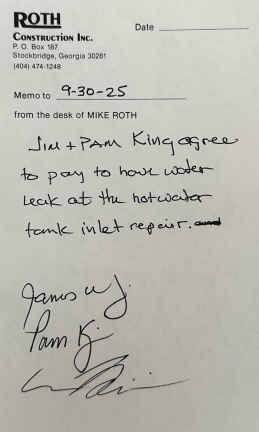 ROTH
CONSTRUCTION INC.
P. O. Box 187
Stockbridge, Georgia 30281
(404) 474-1248
Date
Memo to 9-30-25
from the desk of MIKE ROTH
JIM + PAM King agree
to pay to have water
leak at the hotwater
tank inlet repair.
James W J.
Pam K